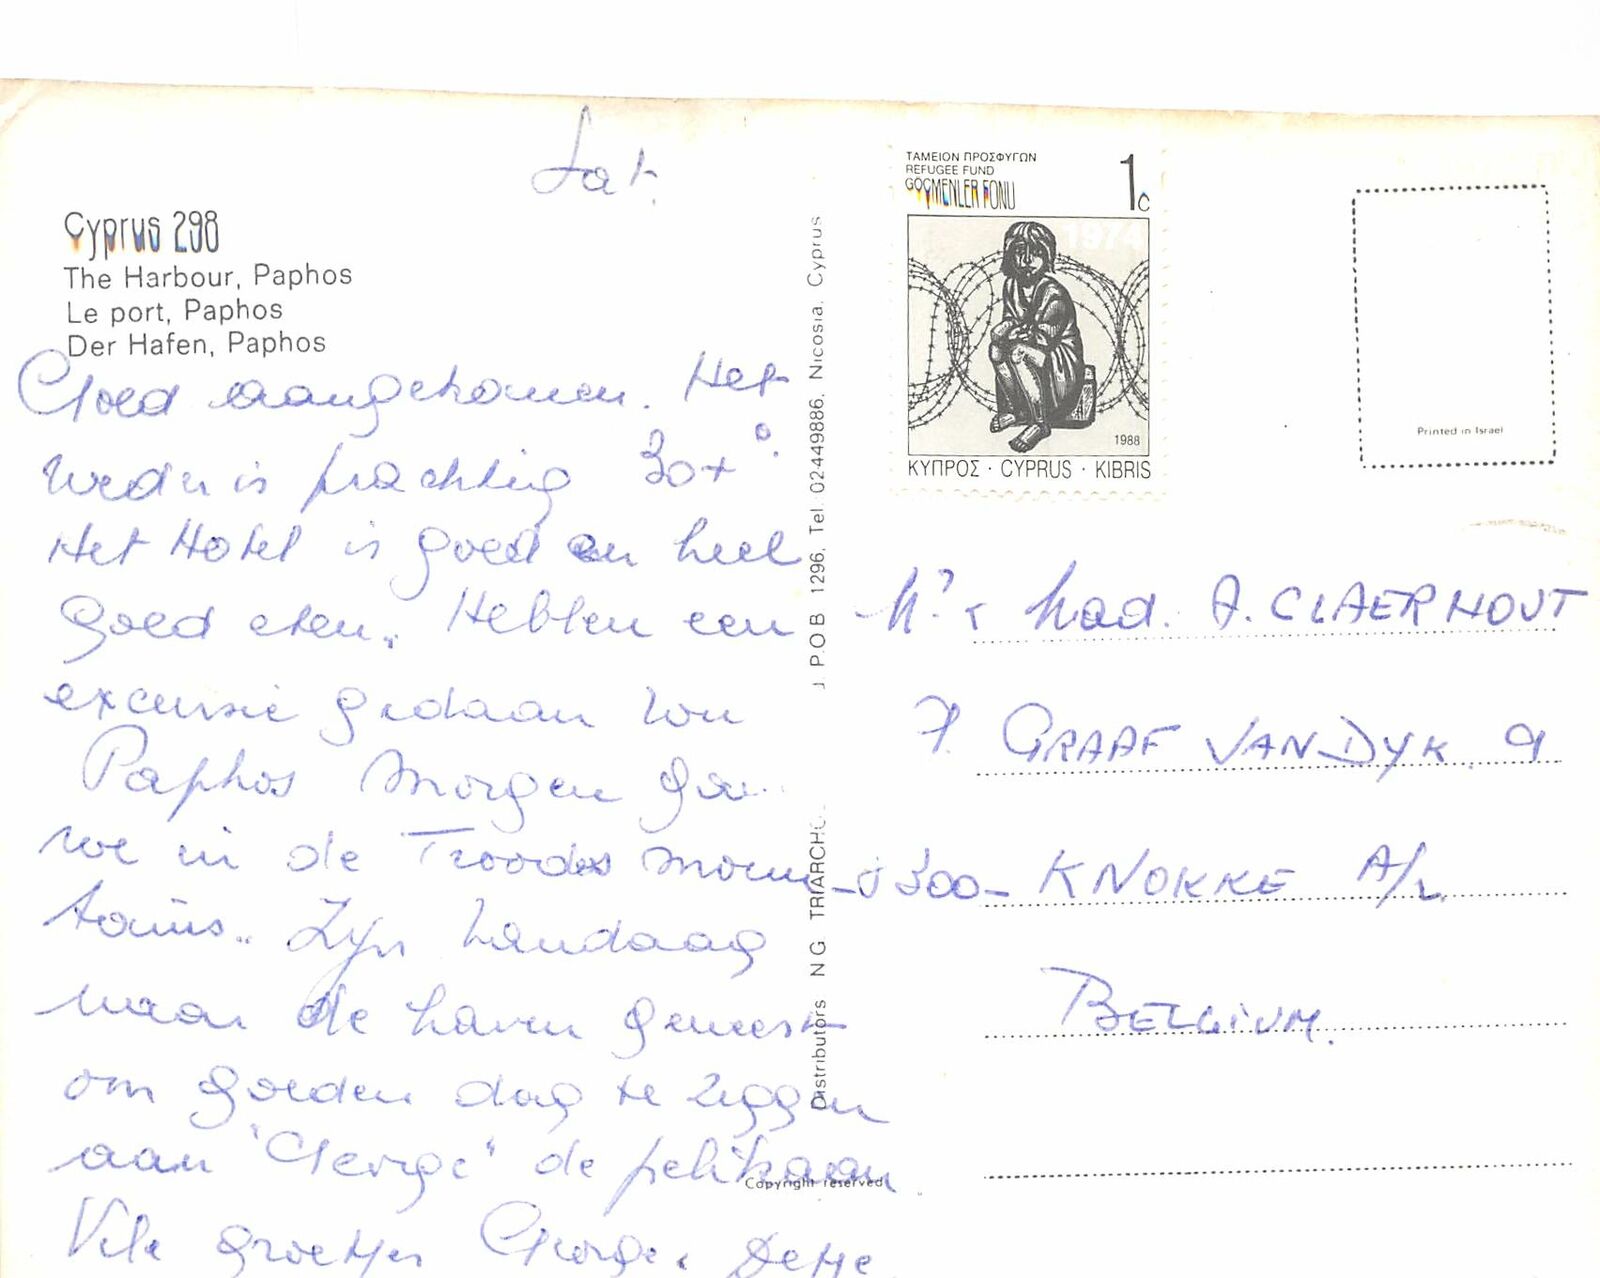 Sat.
Cyprus 298
The Harbour, Paphos
Le port, Paphos
Der Hafen, Paphos
Goed aangekomen. Het
weder is prachtig 30+°.
Het Hotel is goed en heel
goed eten. Hebben een
excursie gedaan
Paphos morgen gaan
we in de Troodos moun-
tains.. Zijn vandaag
naar de haven geweest
om goeden dag te zeggen
aan "George" de pelikaan
Vele groetjes George & Dette
Distributors N G TRIARCHO J. P.O B 1296, Tel. 02449886, Nicosia, Cyprus
Copyright reserved
ΤΑΜΕΙΟΝ ΠΡΟΣΦΥΓΩΝ
REFUGEE FUND
GÖÇMENLER FONU
1c
1974
1988
ΚΥΠΡΟΣ · CYPRUS · KIBRIS
Printed in Israel
Mr & Mad. A. CLAERHOUT
7. GRAAF VAN DYK. 9
-8300- KNOKKE A/Z
BELGIUM.